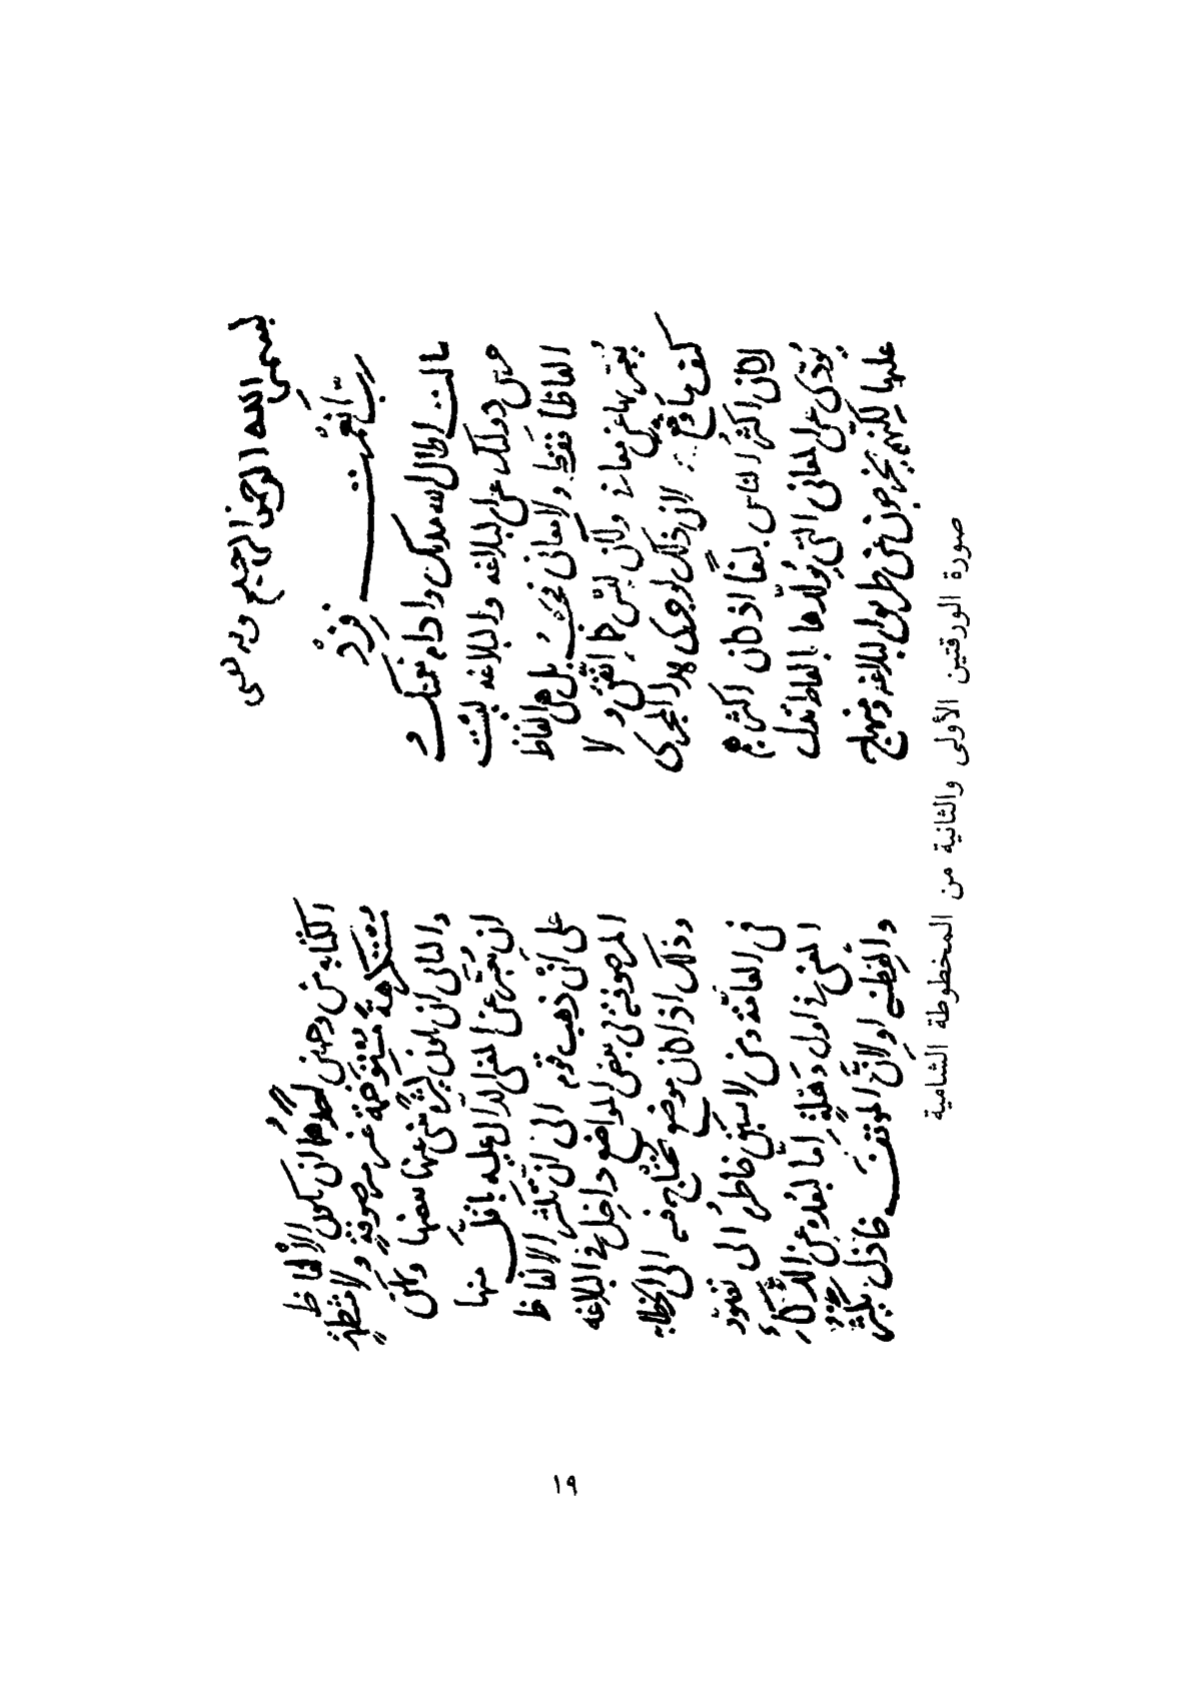 بسم الله الرحمن الرحيم وبه نستعين
رب أنعمت فزد
سالت اطال الله مدتك وادام نعمتك
عن البلاغه والبلاغه ليست
الفاظا فقط ولا معاني فحسب بل هي الفاظ
يعبر بها عن معان ولكن ليس كما اتفق ولا
كيف ما وقع لان ذلك لو جرى هذا المجرى
لكان اكثر الناس بليغا اذ كان اكثرهم
يؤدي عن المعاني التي يولدها بالفاظ تدل
عليها لكنهم يخرجون عن طريق البلاغه ومنهاج
الكتابه من وجهين احدهما ان تكون الالفاظ
مستكرهة مستوخمة غير مرصوفة ولا منتظمة
والثاني ان تكون كثيرة يغني عنها بعضها ويمكن
ان يعبر عن المعنى الدال عليه باقل منها
على ان ذهب قوم الى ان تكثير الالفاظ
المرصوفة في بعض المواضع داخل في البلاغه
وذلك اذا كان موضع يحتاج فيه الى الخطابة
في العامة ومن لا يسبق خاطره الى تصور
المعنى في اول وهلة اما لبعده عن الذكاء
والفطنة او لان الموقف
صورة الورقتين الأولى والثانية من المخطوطة الشامية
١٩